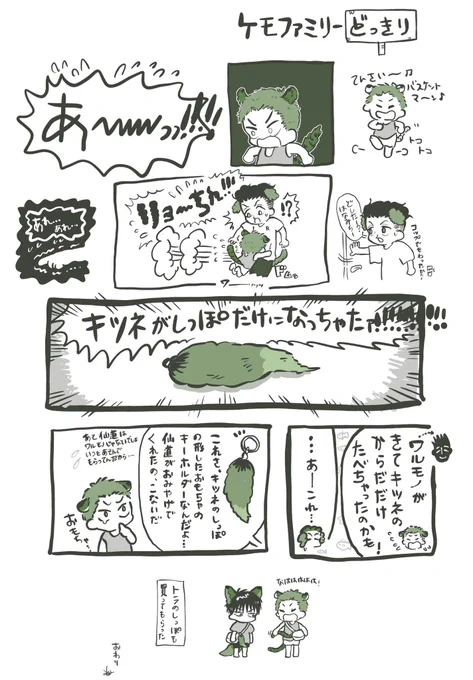 ケモファミリーどっきり
てんさい〜♫
バスケット
マ〜ン♪
トコ
トコ
あ〜〜〜っっ!!!
リョーちん!!!
!?
あれ…
あれ…
キツネがしっぽだけになっちゃたァ!!!!!
ワルモノが
きてキツネの
からだだけ
たべちゃったのかも!
…あーこれ…
これさ、キツネのしっぽ
の形したおもちゃの
キーホルダーなんだよ…
仙道がおみやげで
くれたの、こないだ
あと仙道は
ワルモノじゃないでしょ
いつもあそんで
もらってんだから…
おもちゃ…
なははははは!
トラのしっぽも
買ってもらった
おわり